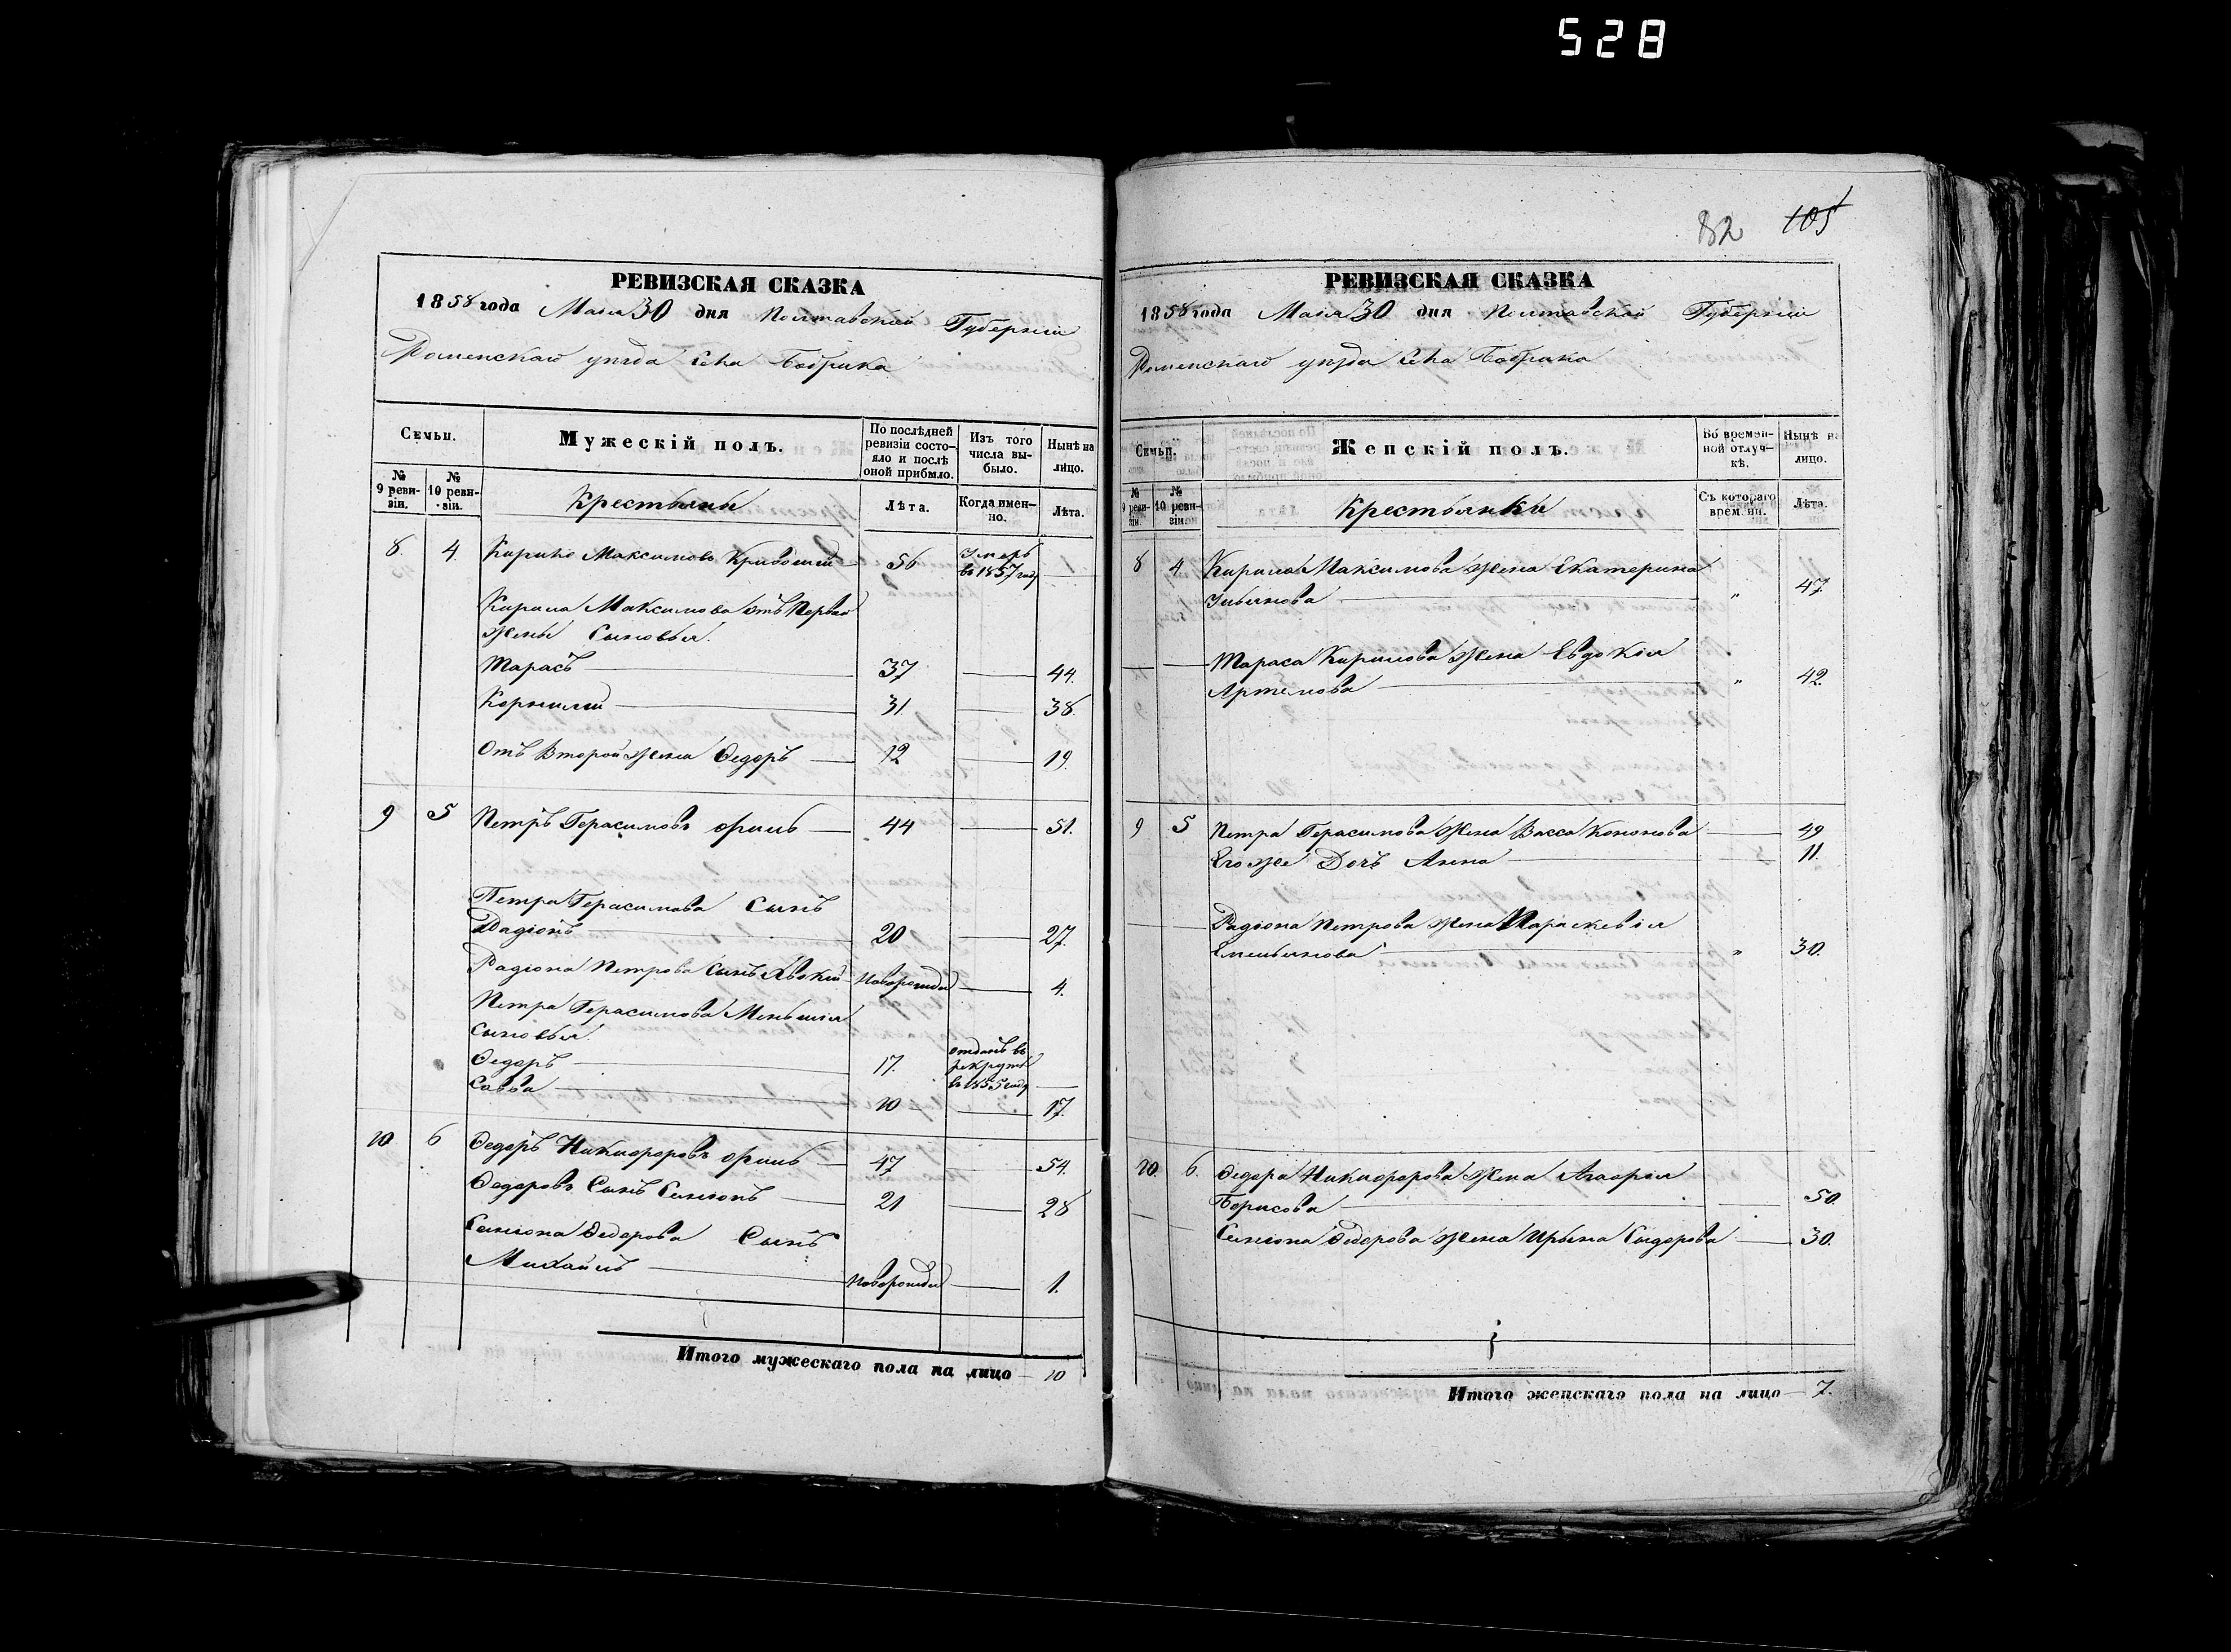 528
РЕВИЗСКАЯ СКАЗКА
1858 года Маія 30 дня Полтавской Губерніи
Роменскаго уѣзда села Бобрика
Семьи.
Мужескій полъ.
По послѣдней ревизіи состояло и послѣ оной прибыло.
Изъ того числа выбыло.
Нынѣ на лицо.
№ 9 ревизіи.
№ 10 ревизіи.
Крестьяны
Лѣта.
Когда именно.
Лѣта.
8. 4. Кирило Максимовъ Кривошей 56 умеръ въ 1857 году
Кирила Максимова отъ Первой
жены Сыновья.
Тарасъ 37 44.
Корнилій 31. 38.
Отъ Второй жены Федоръ 12 19.
9 5 Петръ Герасимовъ 44 51.
Петра Герасимова Сынъ
Радіонъ 20 27.
Радіона Петрова Сынъ новорожды 4.
Петра Герасимова Меньшія
Сыновья.
Федоръ 17. отданъ въ рекруты въ 1855 году
Савва 10 17.
10. 6 Федоръ Никифоровъ 47 54.
Федоровъ Сынъ Симіонъ 21 28
Симіона Федорова Сынъ
Михаилъ новорожды 1.
Итого мужескаго пола на лицо 10
82 105
РЕВИЗСКАЯ СКАЗКА
1858 года Маія 30 дня Полтавской Губерніи
Роменскаго уѣзда села Бобрика
Семьи.
Женскій полъ.
Во временной отлучкѣ.
Нынѣ на лицо.
№ 9 ревизіи
№ 10 ревизіи
Крестьянки
Съ котораго времени.
Лѣта.
8 4. Кирила Максимова жена Екатерина
Ульянова " 47.
Тараса Кирилова жена Евдокія
Артемова " 42.
9 5 Петра Герасимова жена Васса Кононова 49
Его же Дочь Анна 11.
Радіона Петрова жена Параскевія
Емельянова " 30.
10. 6. Федора Никифорова жена Агафія
Борисова 50.
Симіона Федорова жена Ирына Сидорова 30.
Итого женскаго пола на лицо 7.